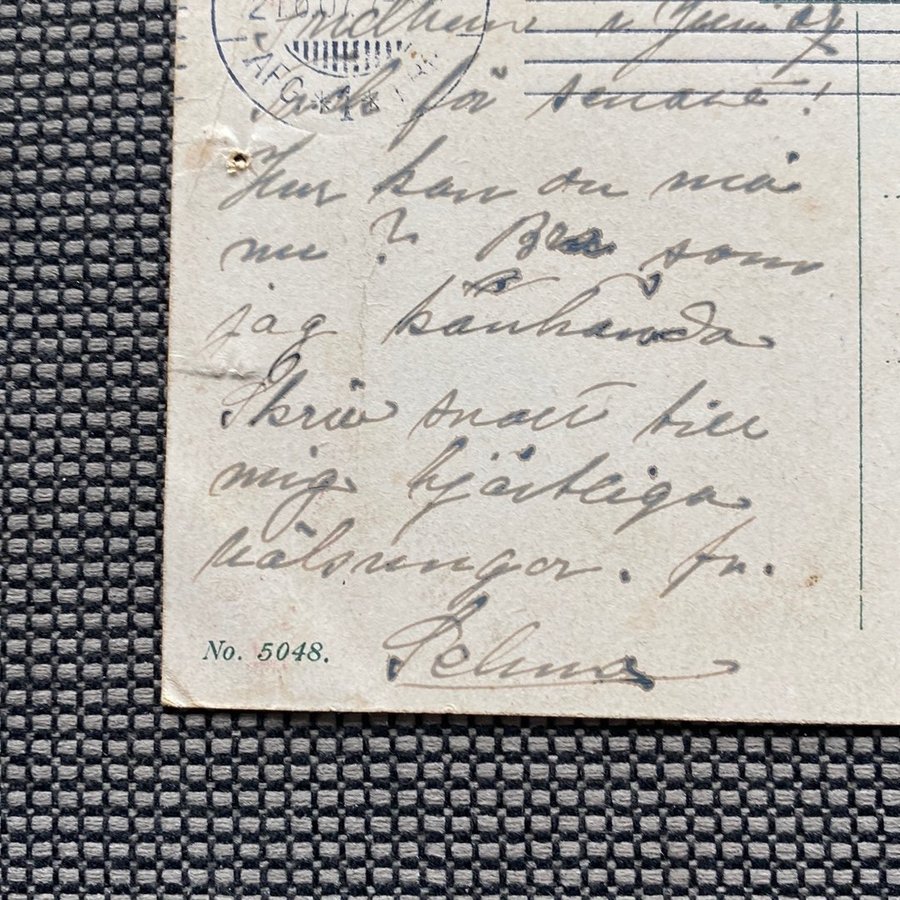 21.6.07
Fridhem Juni 07
AFG. *1*
Tack för senast!
Hur kan du må
nu? Bra som
jag kanhända
Skriv snart till
mig hjärtliga
hälsningar. fr.
Selma
No. 5048.